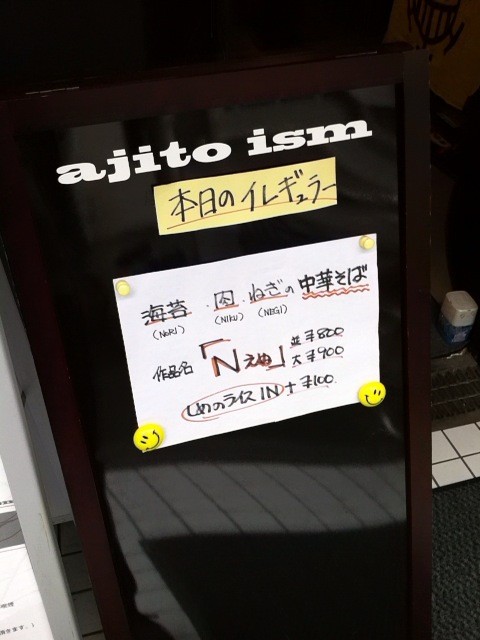 ajito ism
本日のイレギュラー
海苔・肉・ねぎの中華そば
(NORI) (NIKU) (NEGI)
作品名「Nえぬ」
並¥800
大¥900
〆のライスIN +¥100